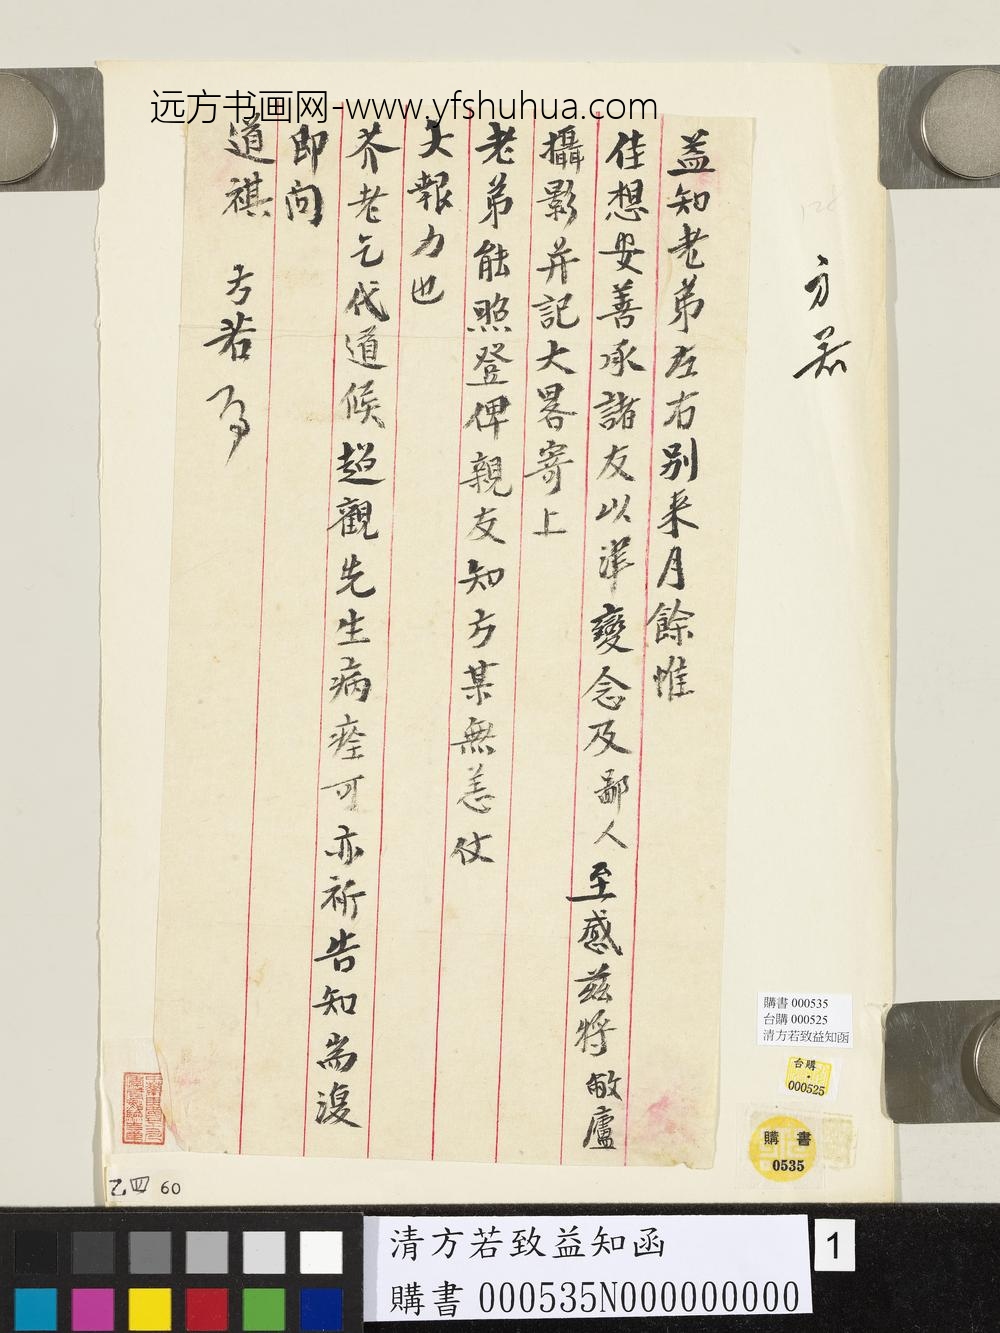 远方书画网-www.yfshuhua.com
益知老弟左右別来月餘惟
佳想安善承諸友以津變念及鄙人至感茲將敝廬
攝影并記大畧寄上
老弟能照登俾親友知方某無恙仗
大報力也
芥老乞代道候超觀先生病痊可亦祈告知耑復
即問
道祺 方若
方若
購書 000535
台購 000525
清方若致益知函
台購
000525
購書
0535
乙四 60
清方若致益知函
購書 000535N000000000
1